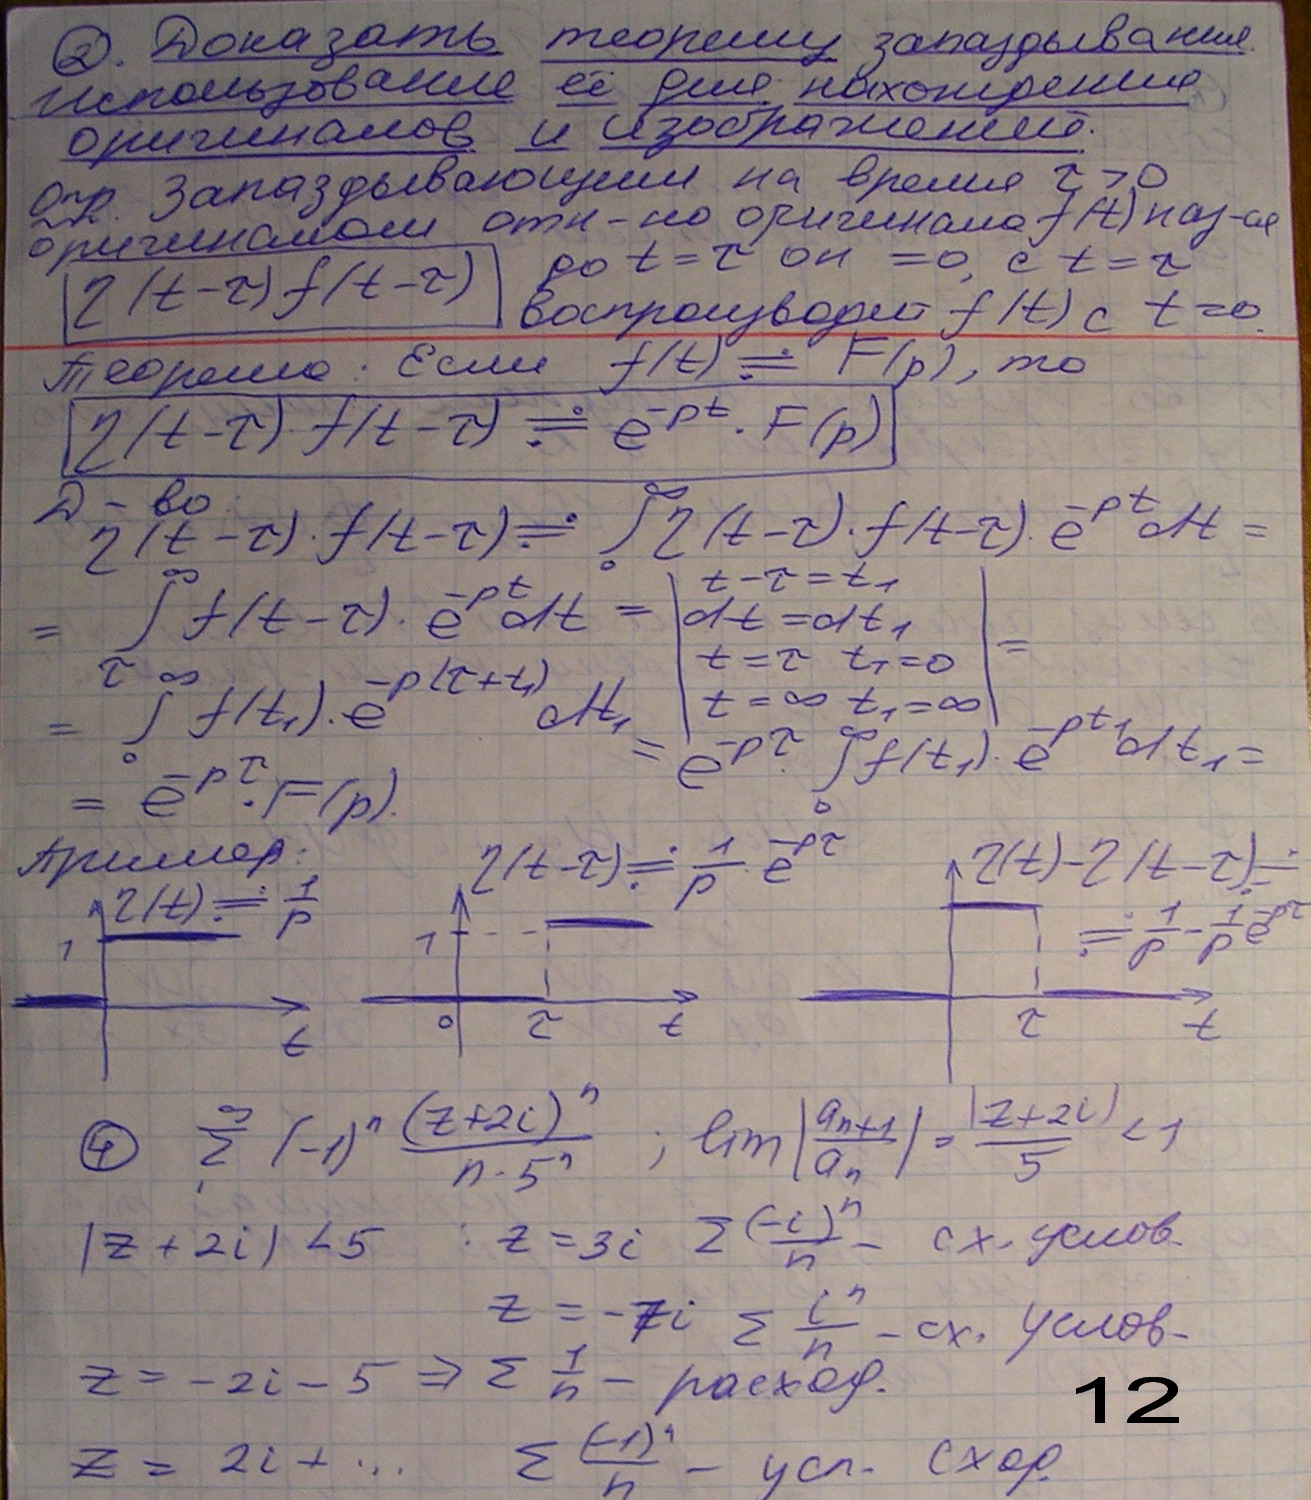 ②. Доказать теорему запаздывания.
Использование её для нахождения
оригиналов и изображений.
Опр. Запаздывающим на время τ > 0
оригиналом отн-но оригинала f(t) наз-ся
η(t-τ) f(t-τ) до t = τ он = 0, с t = τ
воспроизводит f(t) с t = 0.
Теорема: Если f(t) ≓ F(p), то
η(t-τ)·f(t-τ) ≓ e^{-pt}·F(p)
Д-во:
η(t-τ)·f(t-τ) ≓ ∫_0^∞ η(t-τ)·f(t-τ)·e^{-pt}dt =
= ∫_τ^∞ f(t-τ)·e^{-pt}dt = | t-τ = t₁
dt = dt₁
t = τ t₁ = 0
t = ∞ t₁ = ∞ | =
= ∫_0^∞ f(t₁)·e^{-p(τ+t₁)} dt₁ = e^{-pτ}·∫_0^∞ f(t₁)·e^{-pt₁}dt₁ =
= e^{-pτ}·F(p).
Пример:
η(t) ≓ 1/p
1
t
η(t-τ) ≓ 1/p · e^{-pτ}
1
0 τ t
η(t) - η(t-τ) ≓
≓ 1/p - 1/p e^{-pτ}
τ t
④ Σ_1^∞ (-1)^n (z+2i)^n / n·5^n ; lim |a_{n+1}/a_n| = |z+2i|/5 < 1
|z+2i| < 5 : z = 3i Σ (-i)^n/n - сх. услов.
z = -7i Σ i^n/n - сх. услов-
z = -2i - 5 ⇒ Σ 1/n - расход.
z = 2i + ... Σ (-1)^n/n - усл. сход.
12